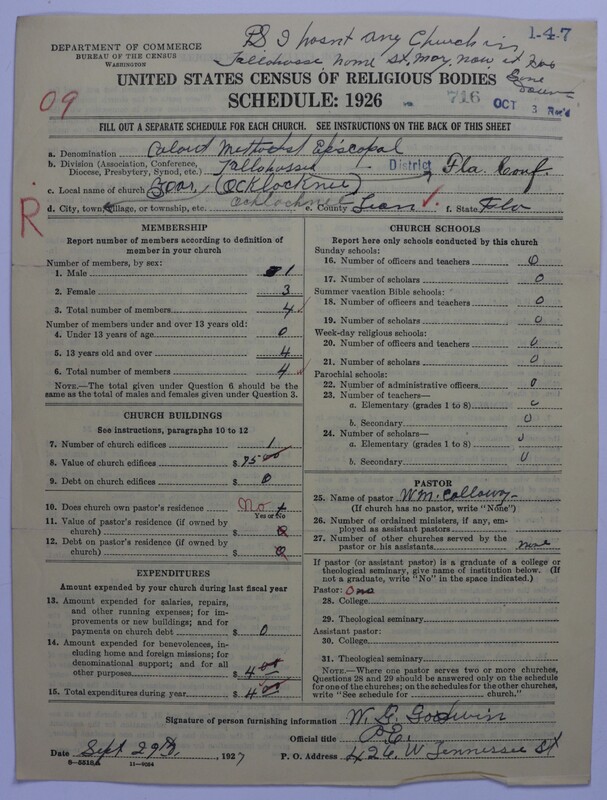 PS I hasnt any Church in
1-4-7
Tallahasse home St, may, now it has
Gone down
DEPARTMENT OF COMMERCE
BUREAU OF THE CENSUS
WASHINGTON
UNITED STATES CENSUS OF RELIGIOUS BODIES
SCHEDULE: 1926
09
716
OCT 3 Rec'd
FILL OUT A SEPARATE SCHEDULE FOR EACH CHURCH. SEE INSTRUCTIONS ON THE BACK OF THIS SHEET
a. Denomination Colord Methodist Episcopal
b. Division (Association, Conference, Diocese, Presbytery, Synod, etc.) Tallahassee District, Fla. Conf.
c. Local name of church (Ocklocknee)
d. City, town, village, or township, etc. Ocklocknee e. County Leon f. State Fla
R
MEMBERSHIP
Report number of members according to definition of
member in your church
Number of members, by sex:
1. Male 1
2. Female 3
3. Total number of members 4
Number of members under and over 13 years old:
4. Under 13 years of age 0
5. 13 years old and over 4
6. Total number of members 4
NOTE.—The total given under Question 6 should be the
same as the total of males and females given under Question 3.
CHURCH BUILDINGS
See instructions, paragraphs 10 to 12
7. Number of church edifices 1
8. Value of church edifices $ 75 00
9. Debt on church edifices $ 0
10. Does church own pastor's residence No
Yes or No
11. Value of pastor's residence (if owned by
church) $ 0
12. Debt on pastor's residence (if owned by
church) $ 0
EXPENDITURES
Amount expended by your church during last fiscal year
13. Amount expended for salaries, repairs,
and other running expenses; for im-
provements or new buildings; and for
payments on church debt $ 0
14. Amount expended for benevolences, in-
cluding home and foreign missions; for
denominational support; and for all
other purposes $ 4 00
15. Total expenditures during year $ 4 00
CHURCH SCHOOLS
Report here only schools conducted by this church
Sunday schools:
16. Number of officers and teachers 0
17. Number of scholars 0
Summer vacation Bible schools:
18. Number of officers and teachers 0
19. Number of scholars 0
Week-day religious schools:
20. Number of officers and teachers 0
21. Number of scholars 0
Parochial schools:
22. Number of administrative officers 0
23. Number of teachers—
a. Elementary (grades 1 to 8) 0
b. Secondary 0
24. Number of scholars—
a. Elementary (grades 1 to 8) 0
b. Secondary 0
PASTOR
25. Name of pastor W M. Calloway
(If church has no pastor, write "None")
26. Number of ordained ministers, if any, em-
ployed as assistant pastors
27. Number of other churches served by the
pastor or his assistants none
If pastor (or assistant pastor) is a graduate of a college or
theological seminary, give name of institution below. (If
not a graduate, write "No" in the space indicated.)
Pastor:
28. College
29. Theological seminary
Assistant pastor:
30. College
31. Theological seminary
NOTE.—Where one pastor serves two or more churches,
Questions 28 and 29 should be answered only on the schedule
for one of the churches; on the schedules for the other churches,
write "See schedule for church."
Signature of person furnishing information W. G. Goodwin
Official title P.E.
Date Sept 29th, 1927 P. O. Address 426 W Tennessee St
8—5516A 11—9084